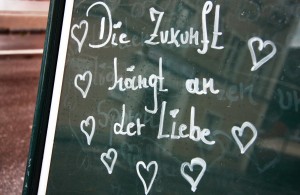 Die Zukunft
hängt an
der Liebe